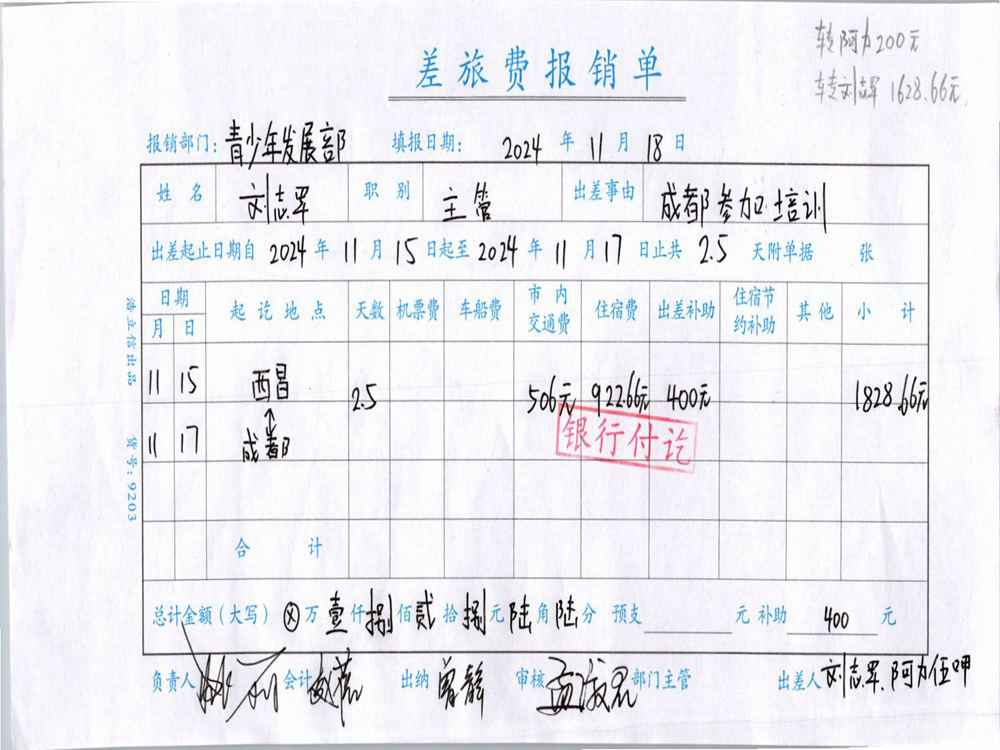 转阿力200元
转刘志军 1628.66元
差旅费报销单
报销部门: 青少年发展部 填报日期: 2024 年 11 月 18 日
姓名 刘志军 职别 主管 出差事由 成都参加培训
出差起止日期自 2024 年 11 月 15 日起至 2024 年 11 月 17 日止共 2.5 天附单据 张
日期 起讫地点 天数 机票费 车船费 市内交通费 住宿费 出差补助 住宿节约补助 其他 小计
月 日
11 15 西昌 2.5 506元 922.66元 400元 1828.66元
11 17 成都
银行付讫
合计
总计金额(大写) ⊗ 万 壹 仟 捌 佰 贰 拾 捌 元 陆 角 陆 分 预支 元 补助 400 元
负责人 会计 出纳 曾静 审核 部门主管 出差人 刘志军、阿力伍呷
浩立信出品 货号:9203